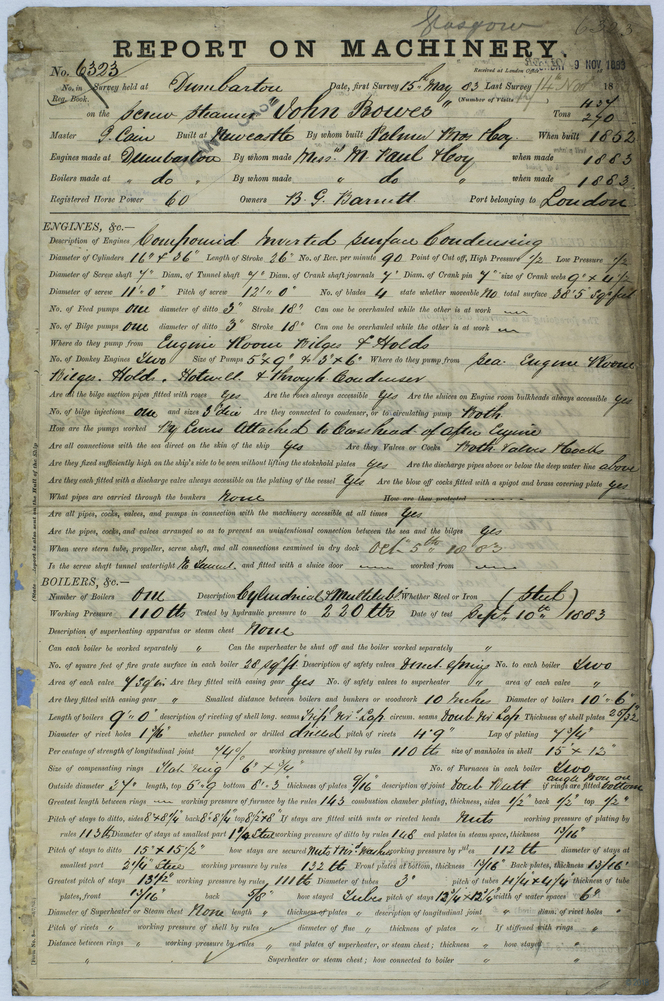 Glasgow 6323
REPORT ON MACHINERY.
No. 6323 Received at London Office 9 NOV 1883
No. in Survey held at Dumbarton Date, first Survey 15th May 83 Last Survey 14 Nov 18
Reg. Book. (Number of Visits
on the Screw Steamer "John Bowes" Tons 437 270
Master Built at Newcastle By whom built Palmer Bros &Coy When built 1852
Engines made at Dumbarton By whom made Mess M. Paul &Coy when made 1883
Boilers made at " do " By whom made " do " when made 1883
Registered Horse Power 60 Owners B. G. Barnett Port belonging to London
ENGINES, &c.—
Description of Engines Compound Inverted Surface Condensing
Diameter of Cylinders 16" & 36" Length of Stroke 26" No. of Rev. per minute 90 Point of Cut off, High Pressure 1/2 Low Pressure 1/2
Diameter of Screw shaft 7" Diam. of Tunnel shaft 7" Diam. of Crank shaft journals 7" Diam. of Crank pin 7" size of Crank webs 9" x 4 1/2
Diameter of screw 11' 0" Pitch of screw 12' 0" No. of blades 4 state whether moveable No total surface 38.5 Sq feet
No. of Feed pumps one diameter of ditto 3" Stroke 18" Can one be overhauled while the other is at work —
No. of Bilge pumps one diameter of ditto 3" Stroke 18" Can one be overhauled while the other is at work —
Where do they pump from Engine Room Bilges & Holds
No. of Donkey Engines Two Size of Pumps 5"x9" & 3"x6" Where do they pump from Sea. Engine Room
Bilges. Hold. Hotwell & through Condenser
Are all the bilge suction pipes fitted with roses yes Are the roses always accessible yes Are the sluices on Engine room bulkheads always accessible yes
No. of bilge injections one and sizes 3" Are they connected to condenser, or to circulating pump Both
How are the pumps worked By Levers attached to Crosshead of after Engine
Are all connections with the sea direct on the skin of the ship yes Are they Valves or Cocks Both Valves &Cocks
Are they fixed sufficiently high on the ship's side to be seen without lifting the stokehold plates yes Are the discharge pipes above or below the deep water line above
Are they each fitted with a discharge valve always accessible on the plating of the vessel yes Are the blow off cocks fitted with a spigot and brass covering plate yes
What pipes are carried through the bunkers None How are they protected —
Are all pipes, cocks, valves, and pumps in connection with the machinery accessible at all times yes
Are the pipes, cocks, valves arranged so as to prevent an unintentional connection between the sea and the bilges yes
When were stern tube, propeller, screw shaft, and all connections examined in dry dock Oct. 5th 1883
Is the screw shaft tunnel watertight No Tunnel and fitted with a sluice door — worked from —
BOILERS, &c.—
Number of Boilers One Description Cylindrical & Multitub. Whether Steel or Iron (Steel
Working Pressure 110 lbs Tested by hydraulic pressure to 220 lbs Date of test Sept. 10th) 1883
Description of superheating apparatus or steam chest None
Can each boiler be worked separately " Can the superheater be shut off and the boiler worked separately "
No. of square feet of fire grate surface in each boiler 28 sq ft. Description of safety valves Direct Spring No. to each boiler Two
Area of each valve 7 sq in Are they fitted with easing gear yes No. of safety valves to superheater " area of each valve "
Are they fitted with easing gear " Smallest distance between boilers and bunkers or woodwork 10 inches Diameter of boilers 10' 6"
Length of boilers 9' 0" description of riveting of shell long. seams Trip. Riv. Lap circum. seams Doub Riv Lap Thickness of shell plates 25/32
Diameter of rivet holes 1 1/16" whether punched or drilled drilled pitch of rivets 4.9" Lap of plating 7 3/4"
Per centage of strength of longitudinal joint 74% working pressure of shell by rules 110 lb size of manholes in shell 15" x 12"
Size of compensating rings Flat ring 6" x 3/4" No. of Furnaces in each boiler Two
Outside diameter 37" length, top 5'-9" bottom 8'-3" thickness of plates 9/16" description of joint Doub Butt if rings are fitted angle iron on bottom
Greatest length between rings — working pressure of furnace by the rules 143 combustion chamber plating, thickness, sides 1/2" back 1/2" top 1/2"
Pitch of stays to ditto, sides 8"x8 1/4" back 8"x8 1/4" top 8 1/2"x8" If stays are fitted with nuts or riveted heads Nuts working pressure of plating by
rules 113 lb Diameter of stays at smallest part 1 1/4 Steel working pressure of ditto by rules 148 end plates in steam space, thickness 13/16"
Pitch of stays to ditto 15" x 15 1/2" how stays are secured Nuts & Riv. Washers working pressure by rules 112 lb diameter of stays at
smallest part 2 1/4" Steel working pressure by rules 132 lb Front plates at bottom, thickness 13/16" Back plates, thickness 13/16"
Greatest pitch of stays 13 1/2" working pressure by rules 111 lb Diameter of tubes 3" pitch of tubes 4 1/4"x4 1/4" thickness of tube
plates, front 13/16" back 5/8" how stayed Tubes pitch of stays 12 3/4"x12 3/4" width of water spaces 6"
Diameter of Superheater or Steam chest None length " thickness of plates " description of longitudinal joint " diam. of rivet holes "
Pitch of rivets " working pressure of shell by rules " diameter of flue " thickness of plates " If stiffened with rings "
Distance between rings " working pressure by rules " end plates of superheater, or steam chest; thickness " how stayed "
" Superheater or steam chest; how connected to boiler "